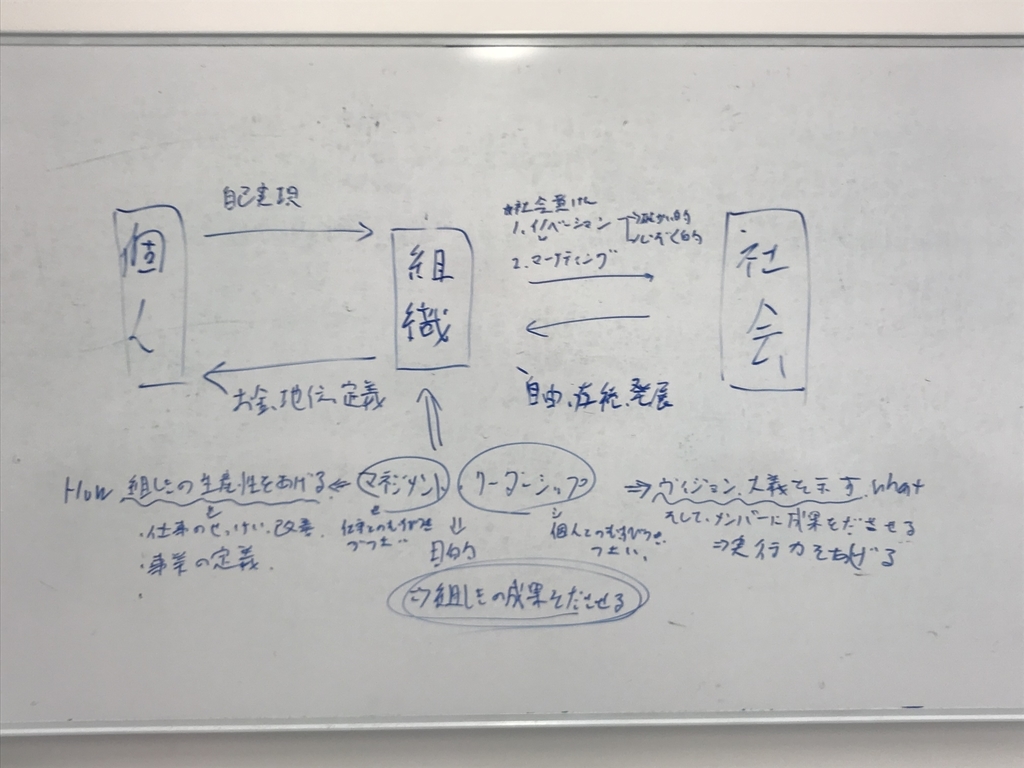 自己実現
個人
組織
社会
社会貢献
1. イノベーション
2. マーケティング
お金、地位、定義
自由、存続、発展
How 組しきの生産性をあげる ← マネジメント リーダーシップ ⇒ ヴィジョン、大義を示す、what
・仕事のせっけい、改善
・事業の定義
目的
個人
そして、メンバーに成果をださせる
⇒ 実行力をあげる
⇒ 組しきの成果をださせる